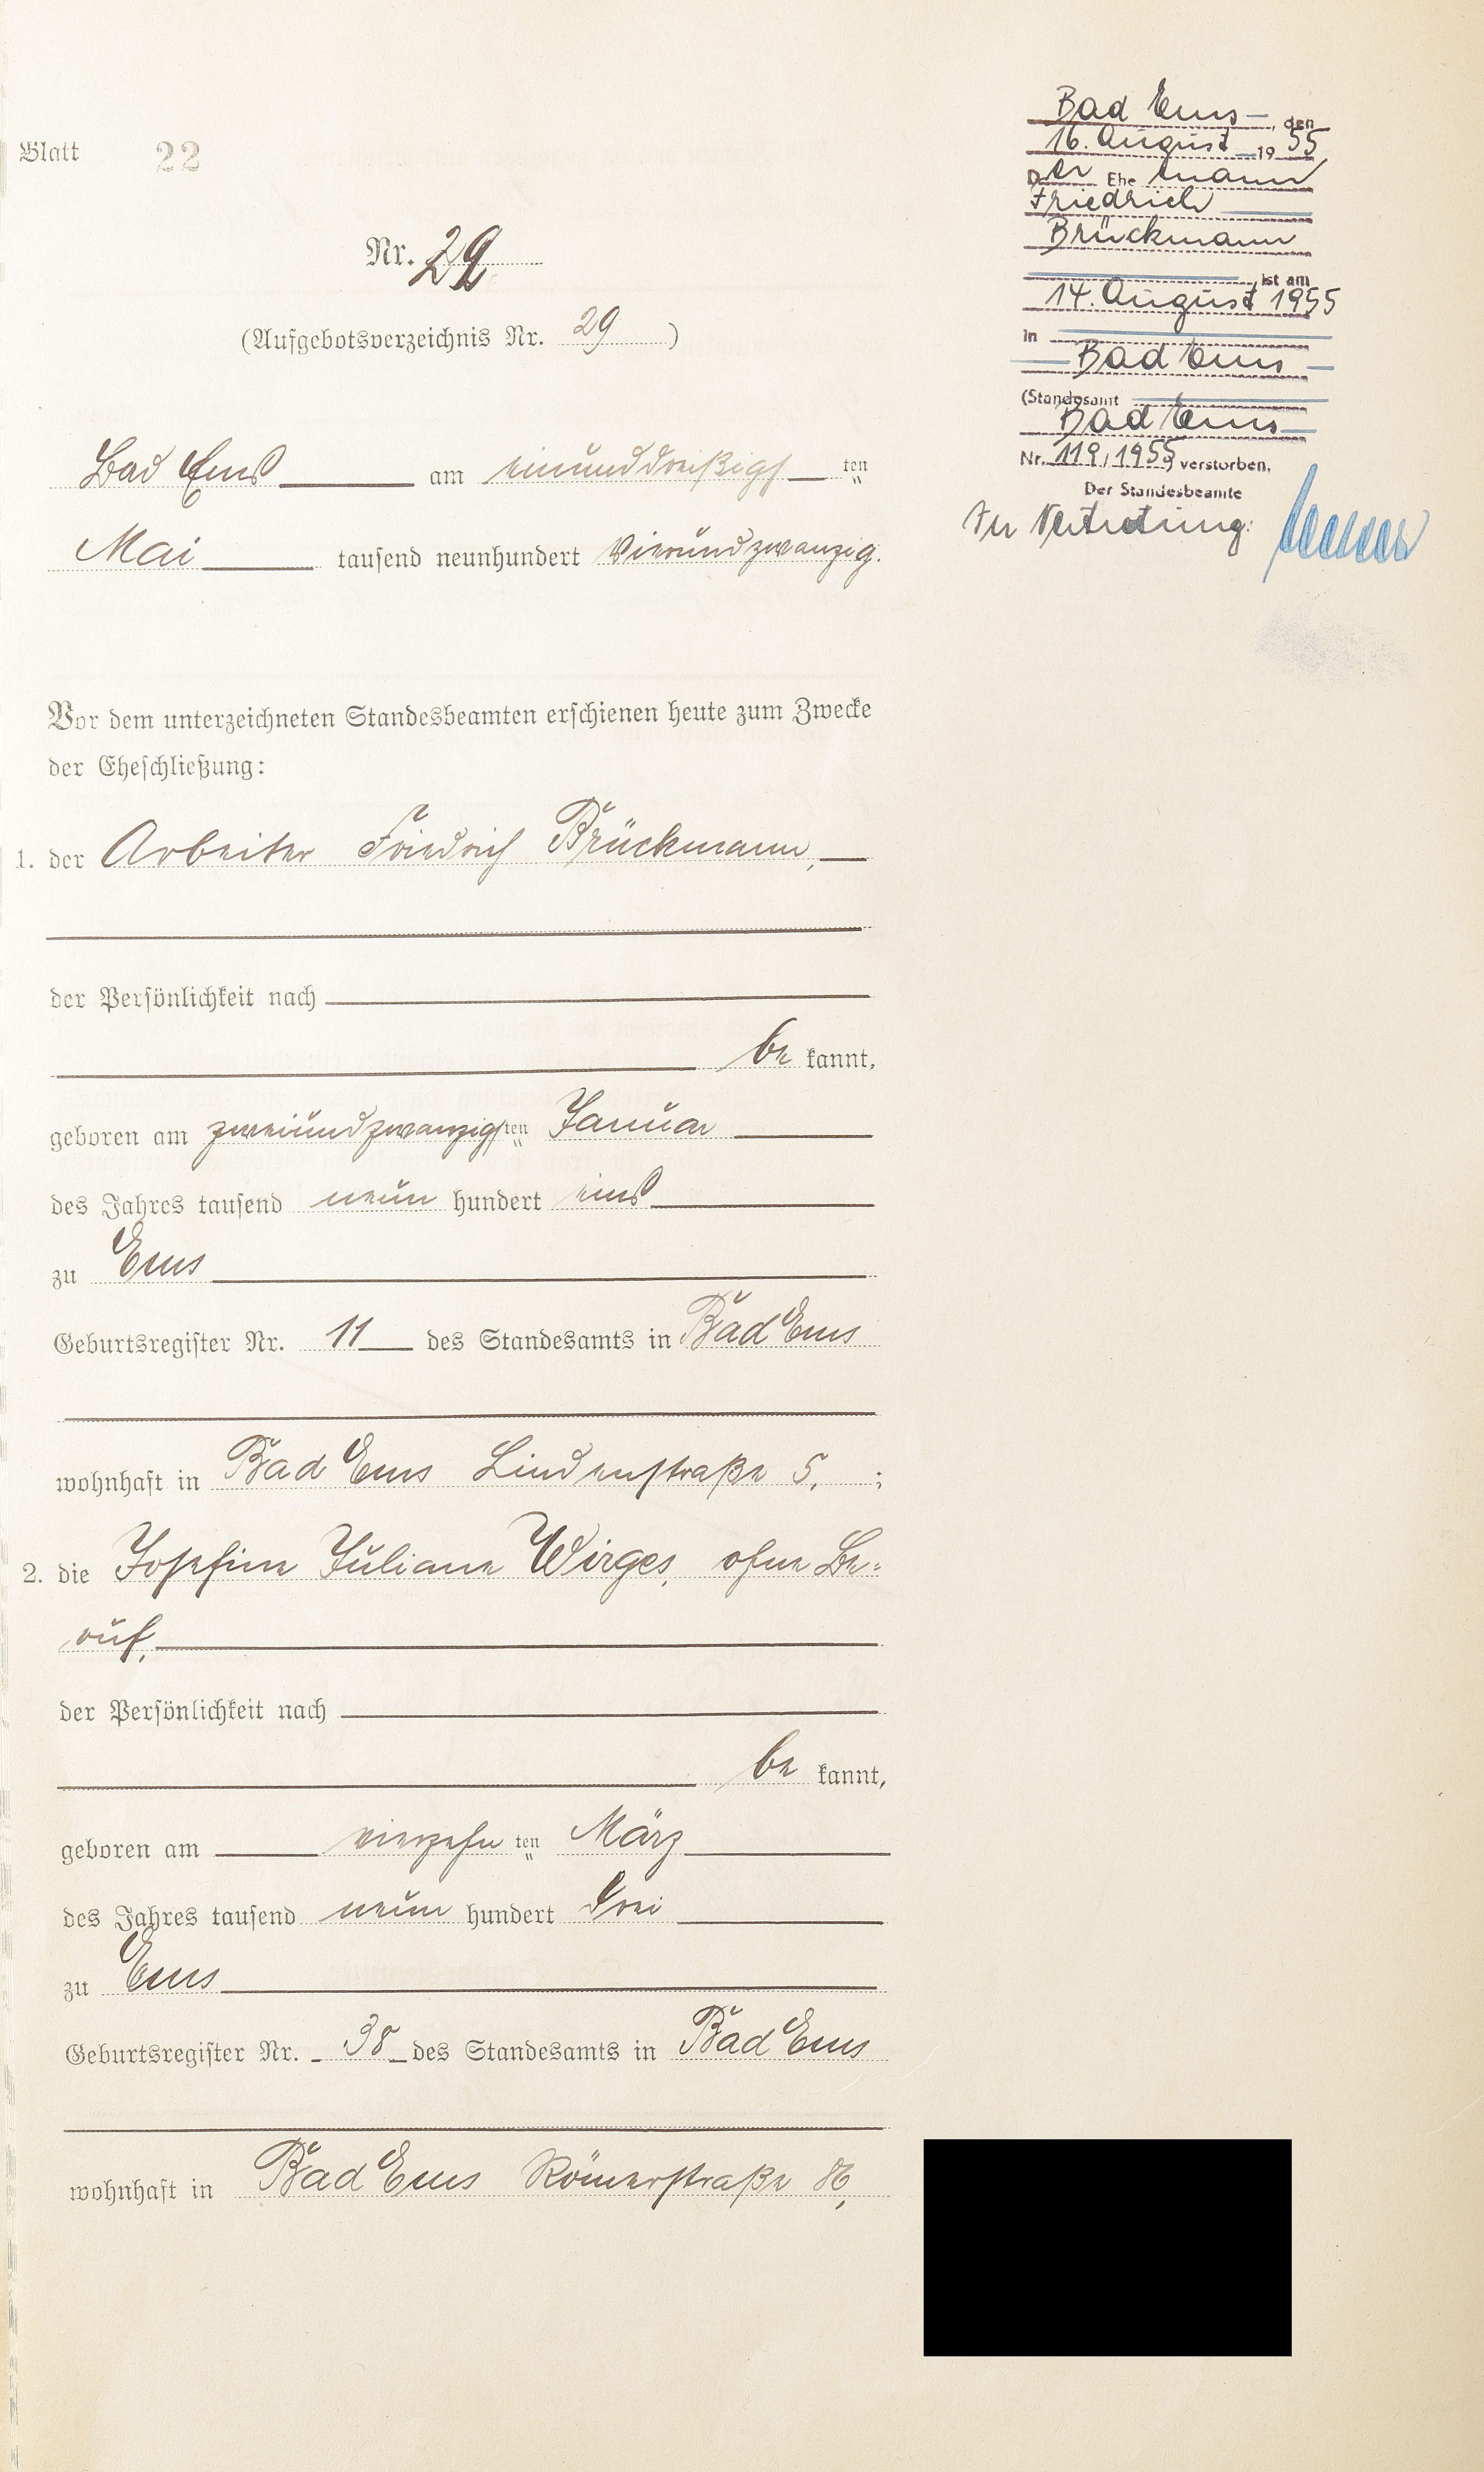 Blatt 22
Nr. 29
(Aufgebotsverzeichnis Nr. 29)
Bad Ems am einunddreißigsten
Mai tausend neunhundert vierundzwanzig.
Vor dem unterzeichneten Standesbeamten erschienen heute zum Zwecke
der Eheschließung:
1. der Arbeiter Friedrich Brückmann,
der Persönlichkeit nach
be kannt,
geboren am zweiundzwanzigsten Januar
des Jahres tausend neun hundert eins
zu Ems
Geburtsregister Nr. 11 des Standesamts in Bad Ems
wohnhaft in Bad Ems Lindenstraße 5, ;
2. die Josefine Juliane Wirges, ohne Be=
ruf,
der Persönlichkeit nach
be kannt,
geboren am vierzehn ten März
des Jahres tausend neun hundert drei
zu Ems
Geburtsregister Nr. 38 des Standesamts in Bad Ems
wohnhaft in Bad Ems Römerstraße 86,
Bad Ems, den
16. August 1955
Der Ehemann
Friedrich
Brückmann
ist am
14. August 1955
in
Bad Ems
(Standesamt
Bad Ems
Nr. 119/1955) verstorben.
Der Standesbeamte
In Vertretung: